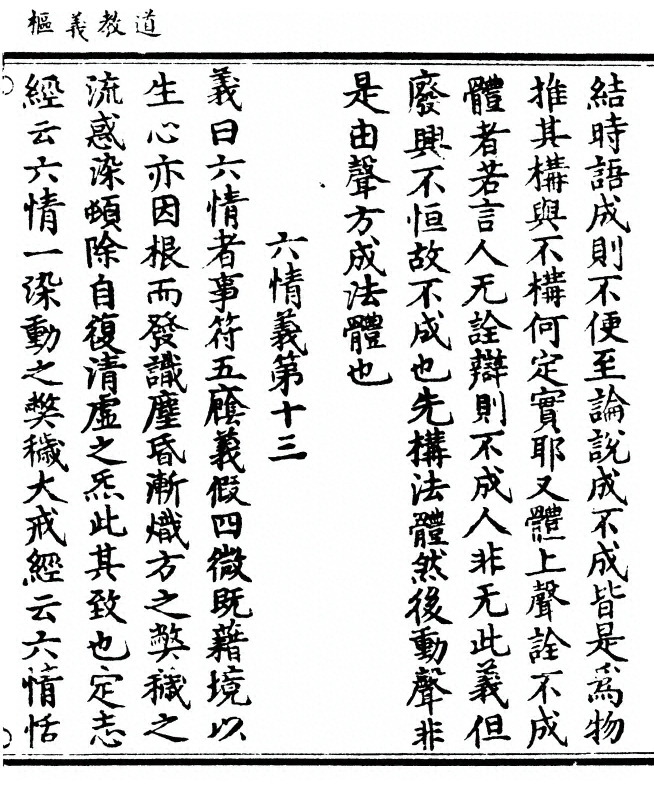 道教義樞
結時語成則不便至論說成不成皆是爲物
推其構與不構何定實耶又體上聲詮不成
體者若言人无詮辯則不成人非无此義但
廢興不恒故不成也先構法體然後動聲非
是由聲方成法體也
六情義第十三
義曰六情者事符五廕義假四微既藉境以
生心亦因根而發識塵昏漸熾方之獘穢之
流惑染頓除自復清虛之炁此其致也定志
經云六情一染動之獘穢大戒經云六情恬